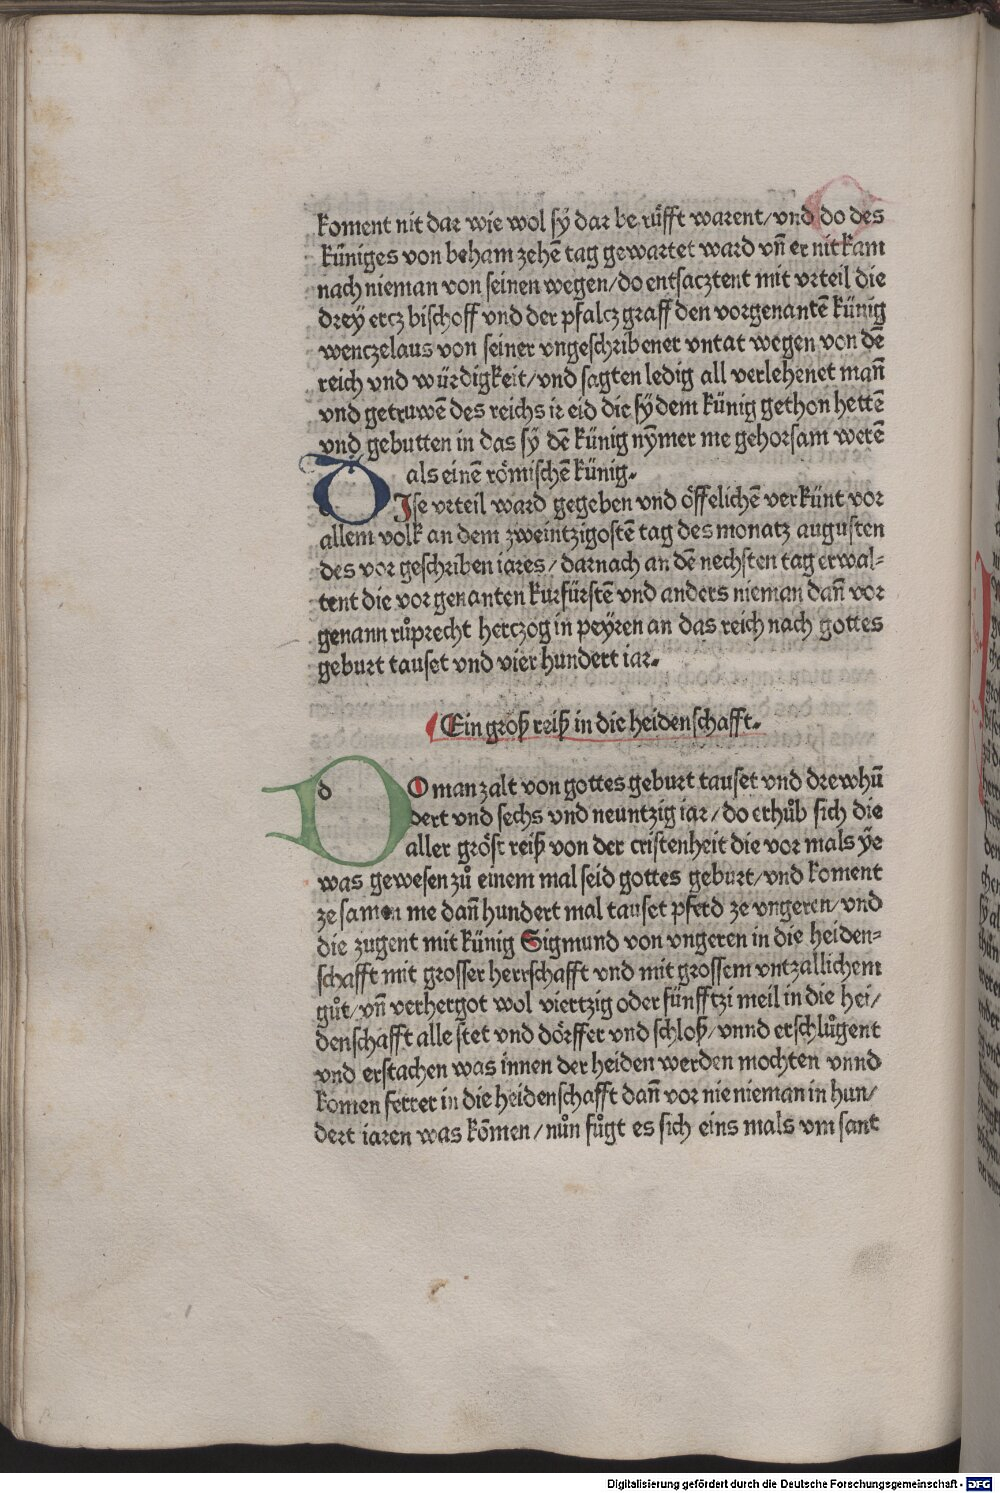 koment nit dar wie wol sÿ dar be rüfft warent/vnd do des
küniges von beham zehē tag gewartet ward vn̄ er nit kam
nach nieman von seinen wegen/do entsacztent mit vrteil die
drey ercz bischoff vnd der pfalcz graff den vorgenantē künig
wenczelaus von seiner vngeschribener vntat wegen von dē
reich vnd würdigkeit/vnd sagten ledig all verlehenet man̄
vnd getruwē des reichs ir eid die sÿ dem künig gethon hettē
vnd gebutten in das sÿ dē künig nÿmer me gehorsam werē
als einē römischē künig.
DIse vrteil ward gegeben vnd öffelichē verkünt vor
allem volk an dem zweintzigostē tag des monatz augusten
des vor geschriben iares/darnach an dē nechsten tag erwal-
tent die vor genanten kurfürstē vnd anders nieman dan̄ vor
genann růprecht herczog in peÿren an das reich nach gottes
geburt tauset vnd vier hundert iar.
Ein groß reiß in die heidenschafft.
DO man zalt von gottes geburt tauset vnd drewhū
dert vnd sechs vnd neuntzig iar/do erhůb sich die
aller gröst reiß von der cristenheit die vor mals ÿe
was gewesen zů einem mal seid gottes geburt/vnd koment
ze samen me dan̄ hundert mal tauset pferd ze vngeren/vnd
die zugent mit künig Sigmund von vngeren in die heiden-
schafft mit grosser herrschafft vnd mit grossem vntzallichem
gůt/vn̄ verhergot wol viertzig oder fünfftzi meil in die hei/
denschafft alle stet vnd dörffer vnd schloß/vnnd erschlůgent
vnd erstachen was innen der heiden werden mochten vnnd
komen ferrer in die heidenschafft dan̄ vor nie nieman in hun/
dert iaren was kōmen/nůn fůgt es sich eins mals vm sant
Digitalisierung gefördert durch die Deutsche Forschungsgemeinschaft - DFG